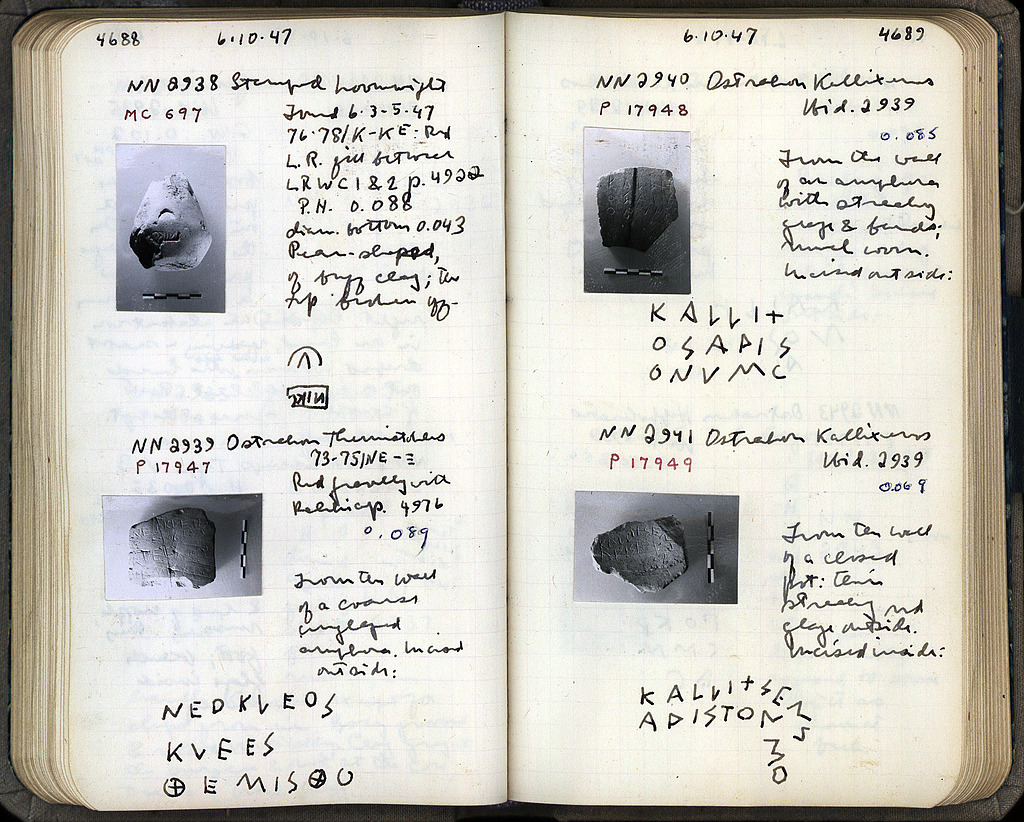 4688 6·10·47
NN 2938 Stamped Loomweight
MC 697
Found 6·3-5·47
76-78/K-KE: Red
L.R. fill between
LRWC 1 & 2 p. 4922
P.H. 0.088
diam. bottom 0.043
Pear-shaped,
of buff clay; the
top broken off.
NN 2939 Ostrakon Themistokles
P 17947
73-75/NE-Ξ
Red gravelly with
p. 4976
0.089
From the wall
of a coarse
unglazed
amphora. Incised
outside:
NEOKVEOS
KVEES
⊕EMIS⊕O
6·10·47 4689
NN 2940 Ostrakon Kallixenos
P 17948
Ibid. 2939
0.085
From the wall
of an amphora
with streaky
glaze & bands;
much worn.
Incised outside:
KALLI+
OSAPIS
ONVMC
NN 2941 Ostrakon Kallixenos
P 17949
Ibid. 2939
0.069
From the wall
of a closed
pot: thin
streaky red
glaze outside.
Incised inside:
KALLI+SEN
APISTON